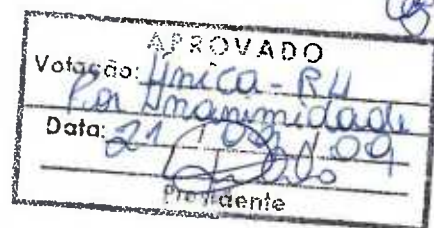 APROVADO
Votação: Única - RU
Por Unanimidade
Data: 21 09
Presidente